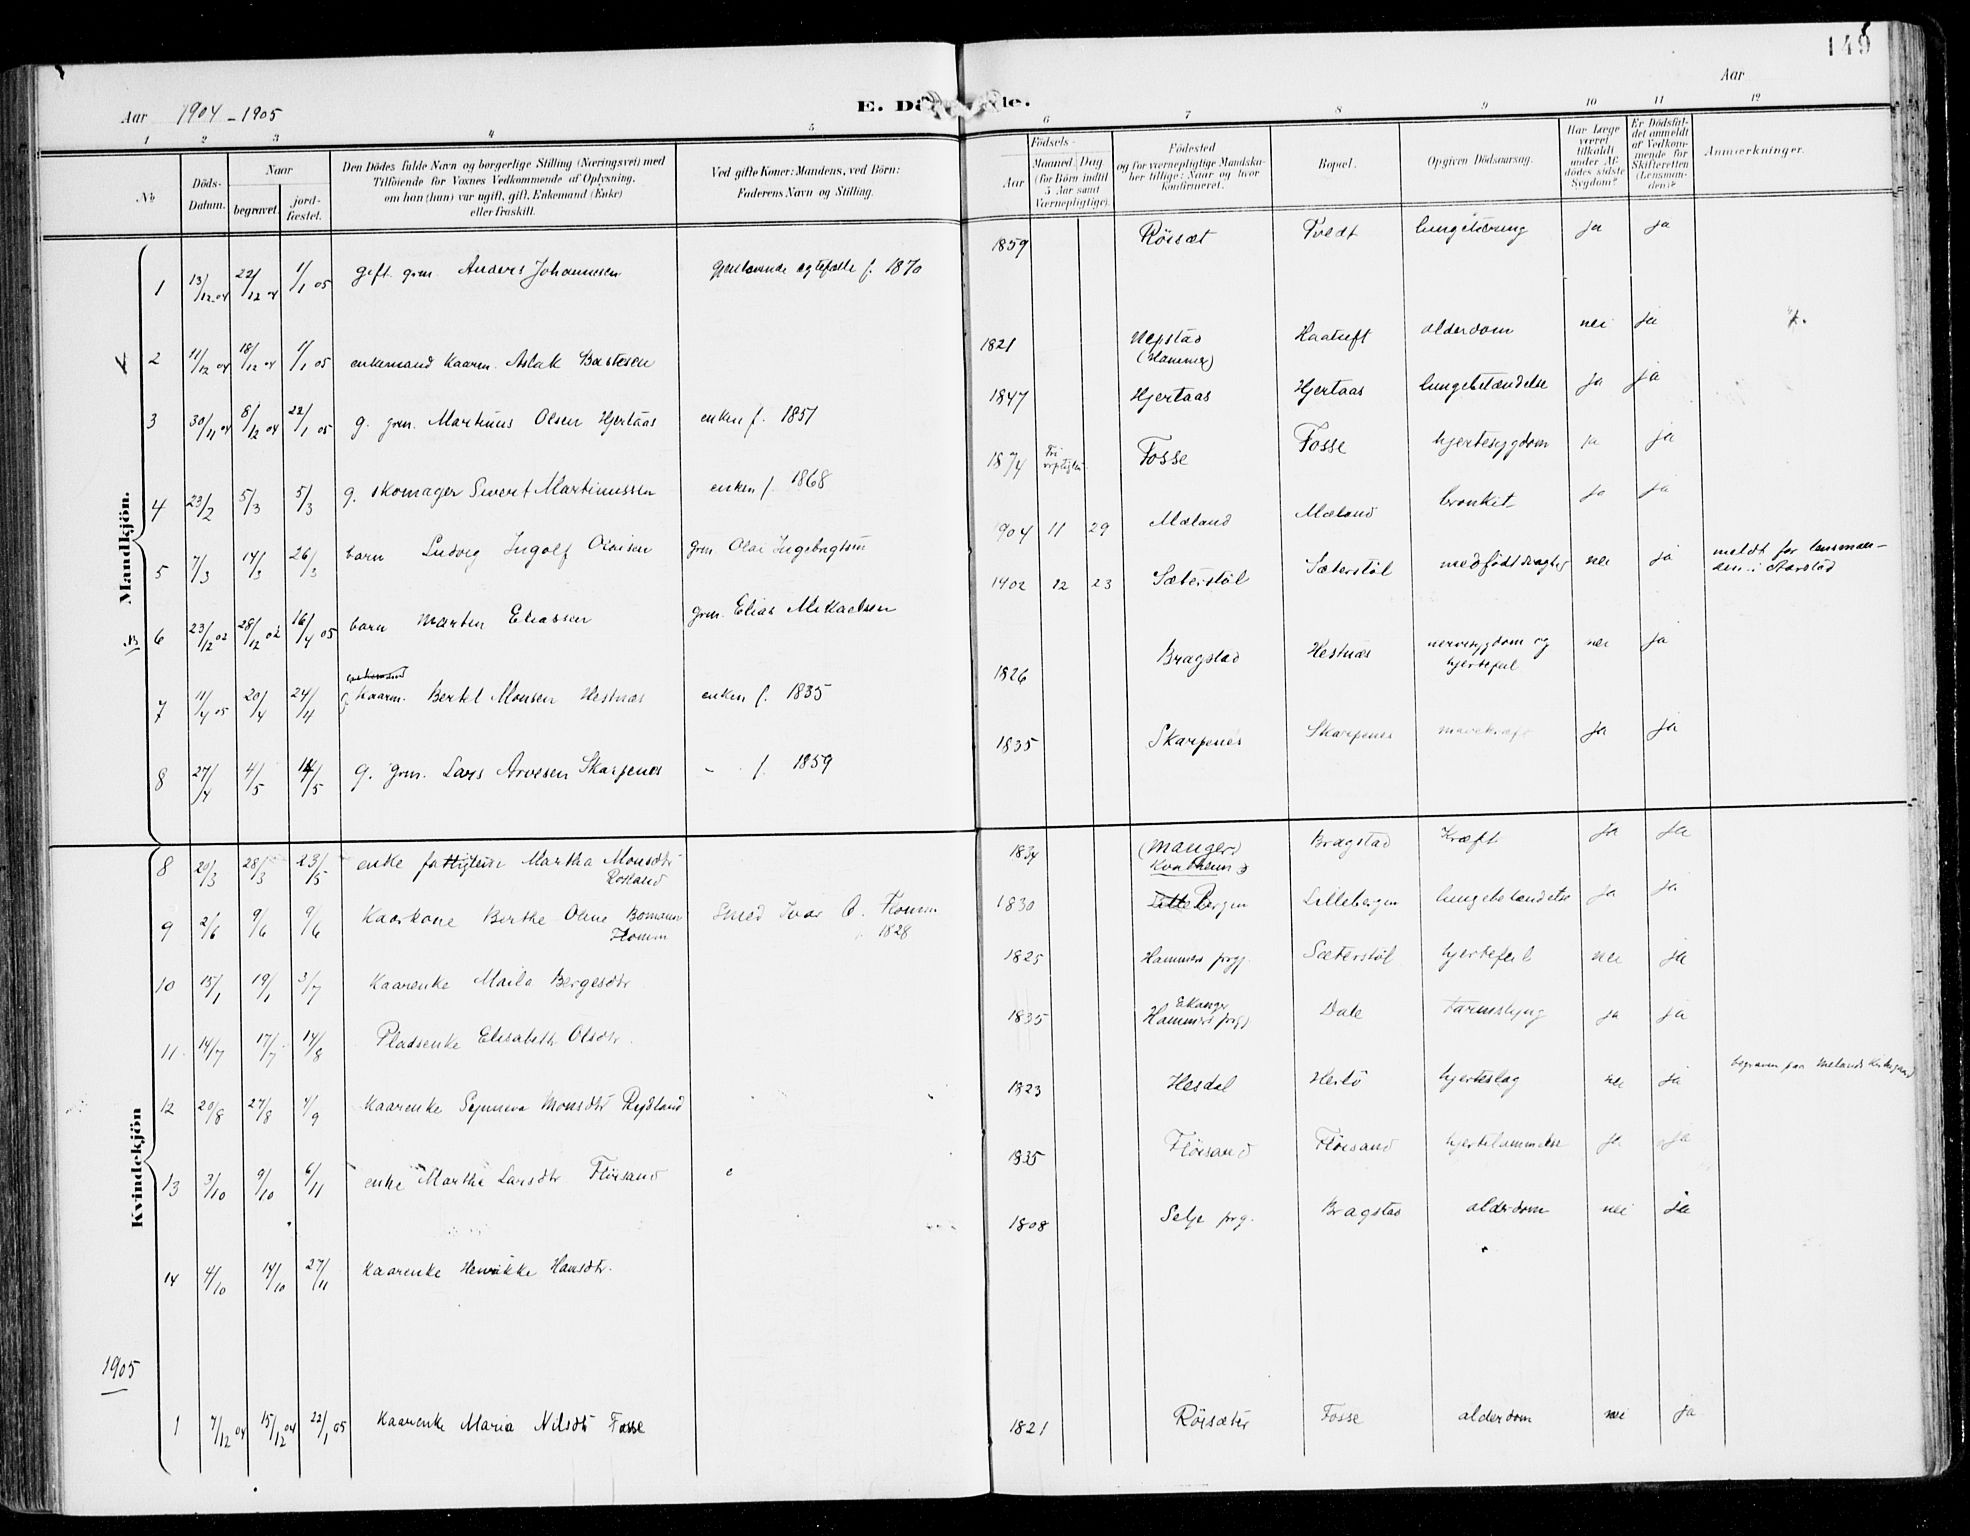 149
Aar 1904-1905
E. Dö
de.
Aar
1 2 3 4 5 6 7 8 9 10 11 12
No
Döds-Datum.
Naar
begravet.
jord-fæstet.
Den Dödes fulde Navn og borgerlige Stilling (Næringsvei) med
Tilföiende for Voxnes Vedkommende af Oplysning.
om han (hun) var ugift, gift, Enkemand (Enke)
eller fraskilt.
Ved gifte Koner: Mandens, ved Börn:
Faderens Navn og Stilling.
Födsels-
Aar
Maaned Dag
(for Börn indtil
5 Aar samt
Værnepligtige).
Födested
og for værnepligtige Mandska-
ber tillige: Naar og hvor
konfirmeret.
Bopæl.
Opgiven Dödsaarsag.
Har Læge
været
tilkaldt
under Af-
dödes sidste
Sygdom?
Er Dödsfal-
det anmeldt
af Vedkom-
mende for
Skifteretten
(Lensman-
den)?
Anmærkninger.
Mandkjön.
1 13/12 04 22/12 04 1/1 05 gift grm. Anders Johannesen gjenlevende ægtefælle f. 1870 1859 Rörsæt Tvedt lungetæring ja ja
2 11/12 04 18/12 04 1/1 05 enkemand kaarm. Aslak Bastesen 1821 Nepstad (Hammer) alderdom nei ja
3 30/11 04 8/12 04 22/1 05 g. grm. Martinus Olsen Hjertaas enken f. 1851 1847 Hjertaas Hjertaas lungebetændelse ja ja
4 23/2 5/3 5/3 g. skomager Sivert Martinussen enken f. 1868 1874 Fosse Fosse hjertesygdom ja ja
5 7/3 14/3 26/3 barn Ludvig Ingolf Olaisen grm. Olai Ingebrigtsen 904 11 29 Mæland Mæland bronkit ja ja
6 23/12 02 28/12 02 16/4 05 barn Martin Eliassen grm. Elias Mikaelsen 1902 12 23 Sæterstöl Sæterstöl medfödt svaghed nei ja meldt for lensman-
den i
7 11/4 05 20/4 24/4 g. kaarm. Bertel Monsen Hestnæs enken f. 1835 1826 Bragstad Hestnæs nervesygdom og
hjertefeil nei ja
8 27/4 4/5 14/5 g. grm. Lars Arvesen Skarpenes - f. 1859 1835 Skarpenes Skarpenes ja ja
Kvindekjön
8 20/3 28/3 23/5 enke fattiglem Martha Monsdtr
Rosland 1834 (Manger)
Kvalheim Bragstad Kræft ja ja
9 2/6 9/6 9/6 Kaarkone Berthe Oline Bomann
Flomm Smed Ivar O. Flomm
1828 1830 Lille Bergen Lillebergen lungebetændelse ja ja
10 15/1 19/1 3/7 Kaarenke Marta Bergesdtr 1825 Hammers prgj. Sæterstöl hjertefeil nei ja
11 14/7 17/7 14/8 Pladsenke Elisabeth Olsdtr. 1835 Ekanger
Hammers prgj Dale Tarmslyng ja ja
12 20/8 27/8 4/9 Kaarenke Synneva Monsdtr Rydland 1823 Hesdal Herlö hjerteslag nei ja begraven paa Mælands Kirkegaard
13 3/10 9/10 6/11 enke Martha Larsdtr Flöisand 1835 Flöisand Flöisand hjertelammelse ja ja
14 4/10 14/10 27/11 Kaarenke Henrikke Hansdtr. 1808 Selje prg. Bragstad alderdom nei ja
1905
1 7/12 04 15/12 04 22/1 05 Kaarenke Maria Nilsdtr Fosse 1821 Rörsæter Fosse alderdom nei ja